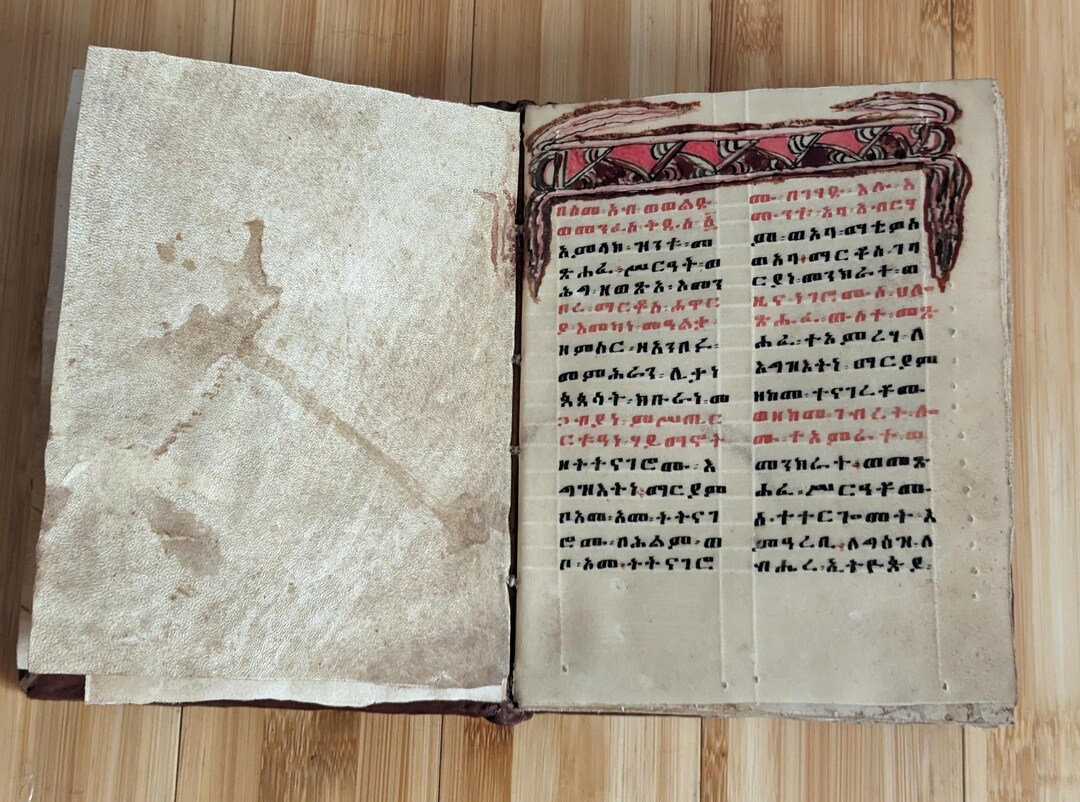 በስመ፡አብ፡ወወልድ፡
ወመንፈስ፡ቅዱስ፡፩
አምላክ፡ዝንቱ፡መ
ጽሐፈ፡ሥርዓት፡ወ
ሕግ፡ዘወጽአ፡እመን
በረ፡ማርቆስ፡ሐዋር
ያ፡እመካነ፡መዓልቃ፡
ዘምስር፡ዘአንበሩ፡
መምህራን፡ሊቃነ
ጳጳሳት፡ክቡራነ፡መ
ኃብያነ፡ምሥጢር
ርቱዓነ፡ሃይማኖት
ዘተተናገሮሙ፡እ
ግዝእትነ፡ማርያም
ቦአመ፡አመ፡ትትናገ
ሮሙ፡በሕልም፡ወ
ቦ፡አመ፡ትትናገሮ
ሙ፡በገሃዱ፡እሉ፡እ
ሙንቱ፡አባ፡አብርሃ
ም፡ወአባ፡ማቴዎስ
ወአባ፡ማርቆስ፡ገባ
ርያነ፡መንክራት፡ወ
ዜና፡ነገሮሙሰ፡ህሎ
ጽሑፈ፡ውስተ፡መጽ
ሐፈ፡ተአምረሃ፡ለ
እግዝእትነ፡ማርያም
ዘከመ፡ተናገረቶሙ
ወዘከመ፡ገብረት፡ሎ
ሙ፡ተአምራተ፡ወ
መንክራተ፡ወመጽ
ሐፈ፡ሥርዓቶሙ
ሰ፡ተተርጐመት፡እ
ምዓረቢ፡ለግዕዝ፡ለ
ብሔረ፡ኢትዮጵያ፡